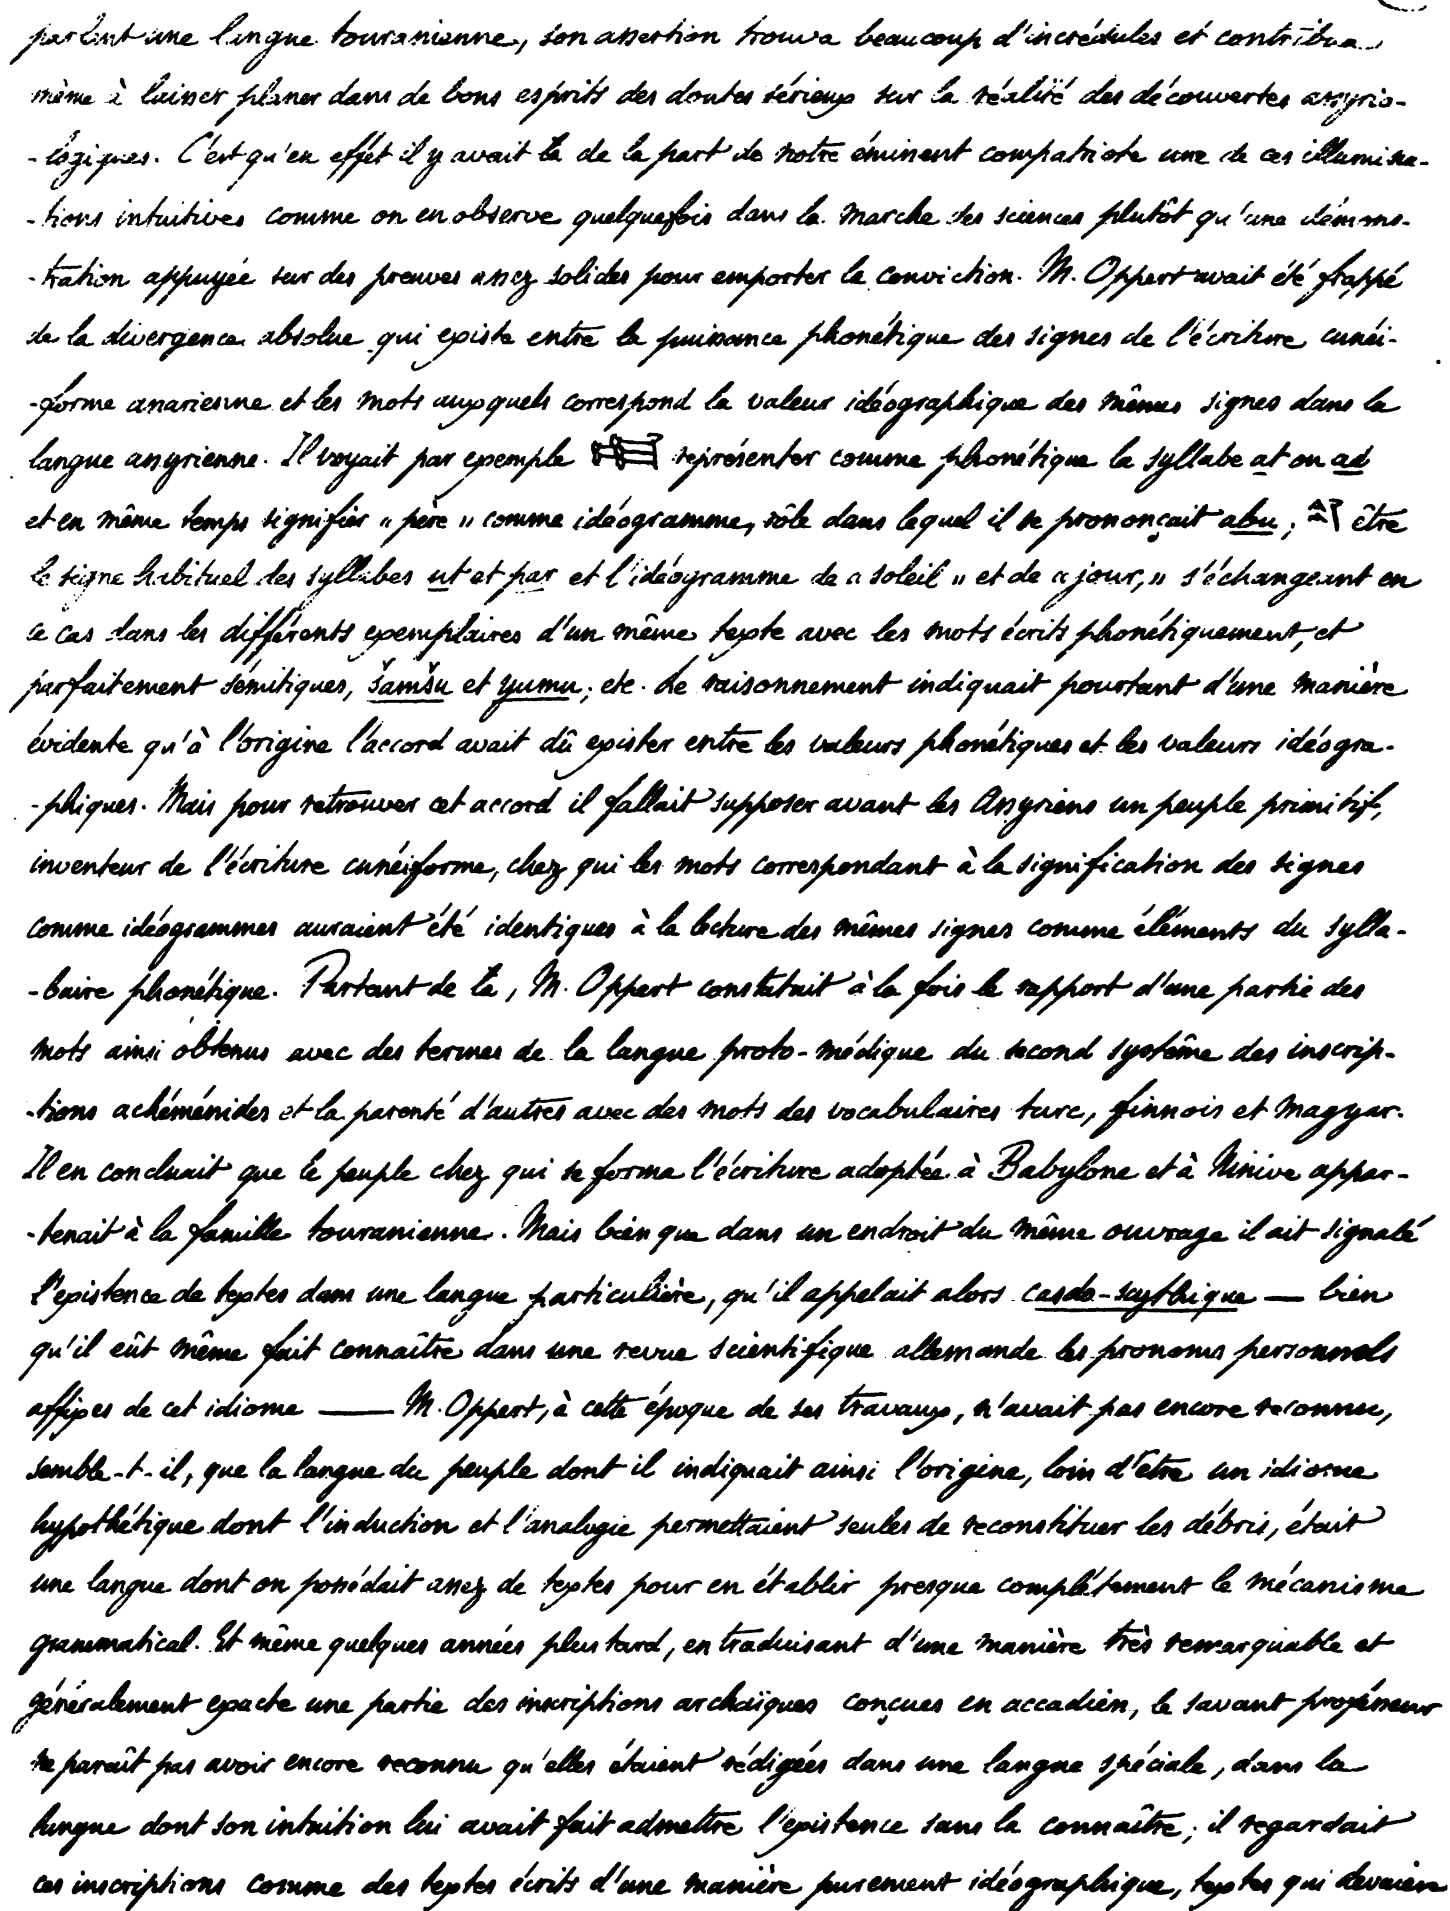 parlant une langue touranienne, son assertion trouva beaucoup d'incrédules et contribua
même à laisser planer dans de bons esprits des doutes sérieux sur la réalité des découvertes assyrio-
-logiques. C'est qu'en effet il y avait là de la part de notre éminent compatriote une de ces illumina-
-tions intuitives comme on en observe quelquefois dans la marche des sciences plutôt qu'une démons-
-tration appuyée sur des preuves assez solides pour emporter la conviction. M. Oppert avait été frappé
de la divergence absolue qui existe entre la puissance phonétique des signes de l'écriture cunéi-
-forme anarienne et les mots auxquels correspond la valeur idéographique des mêmes signes dans la
langue assyrienne. Il voyait par exemple représenter comme phonétique la syllabe at ou ad
et en même temps signifier « père » comme idéogramme, rôle dans lequel il se prononçait abu; être
le signe habituel des syllabes ut et par et l'idéogramme de « soleil » et de « jour, » s'échangeant en
ce cas dans les différents exemplaires d'un même texte avec les mots écrits phonétiquement, et
parfaitement sémitiques, šamšu et yumu; etc. Le raisonnement indiquait pourtant d'une manière
évidente qu'à l'origine l'accord avait dû exister entre les valeurs phonétiques et les valeurs idéogra-
-phiques. Mais pour retrouver cet accord il fallait supposer avant les Assyriens un peuple primitif,
inventeur de l'écriture cunéiforme, chez qui les mots correspondant à la signification des signes
comme idéogrammes auraient été identiques à la lecture des mêmes signes comme éléments du sylla-
-baire phonétique. Partant de là, M. Oppert constatait à la fois le rapport d'une partie des
mots ainsi obtenus avec des termes de la langue proto-médique du second système des inscrip-
-tions achéménides et la parenté d'autres avec des mots des vocabulaires turc, finnois et magyar.
Il en concluait que le peuple chez qui se forma l'écriture adoptée à Babylone et à Ninive appar-
-tenait à la famille touranienne. Mais bien que dans un endroit du même ouvrage il ait signalé
l'existence de textes dans une langue particulière, qu'il appelait alors casdo-scythique — bien
qu'il eût même fait connaître dans une revue scientifique allemande les pronoms personnels
affixes de cet idiome — M. Oppert, à cette époque de ses travaux, n'avait pas encore reconnu,
semble-t-il, que la langue du peuple dont il indiquait ainsi l'origine, loin d'être un idiome
hypothétique dont l'induction et l'analogie permettaient seules de reconstituer les débris, était
une langue dont on possédait assez de textes pour en établir presque complétement le mécanisme
grammatical. Et même quelques années plus tard, en traduisant d'une manière très remarquable et
généralement exacte une partie des inscriptions archaïques conçues en accadien, le savant professeur
ne paraît pas avoir encore reconnu qu'elles étaient rédigées dans une langue spéciale, dans la
langue dont son intuition lui avait fait admettre l'existence sans la connaître; il regardait
ces inscriptions comme des textes écrits d'une manière purement idéographique, textes qui devaien